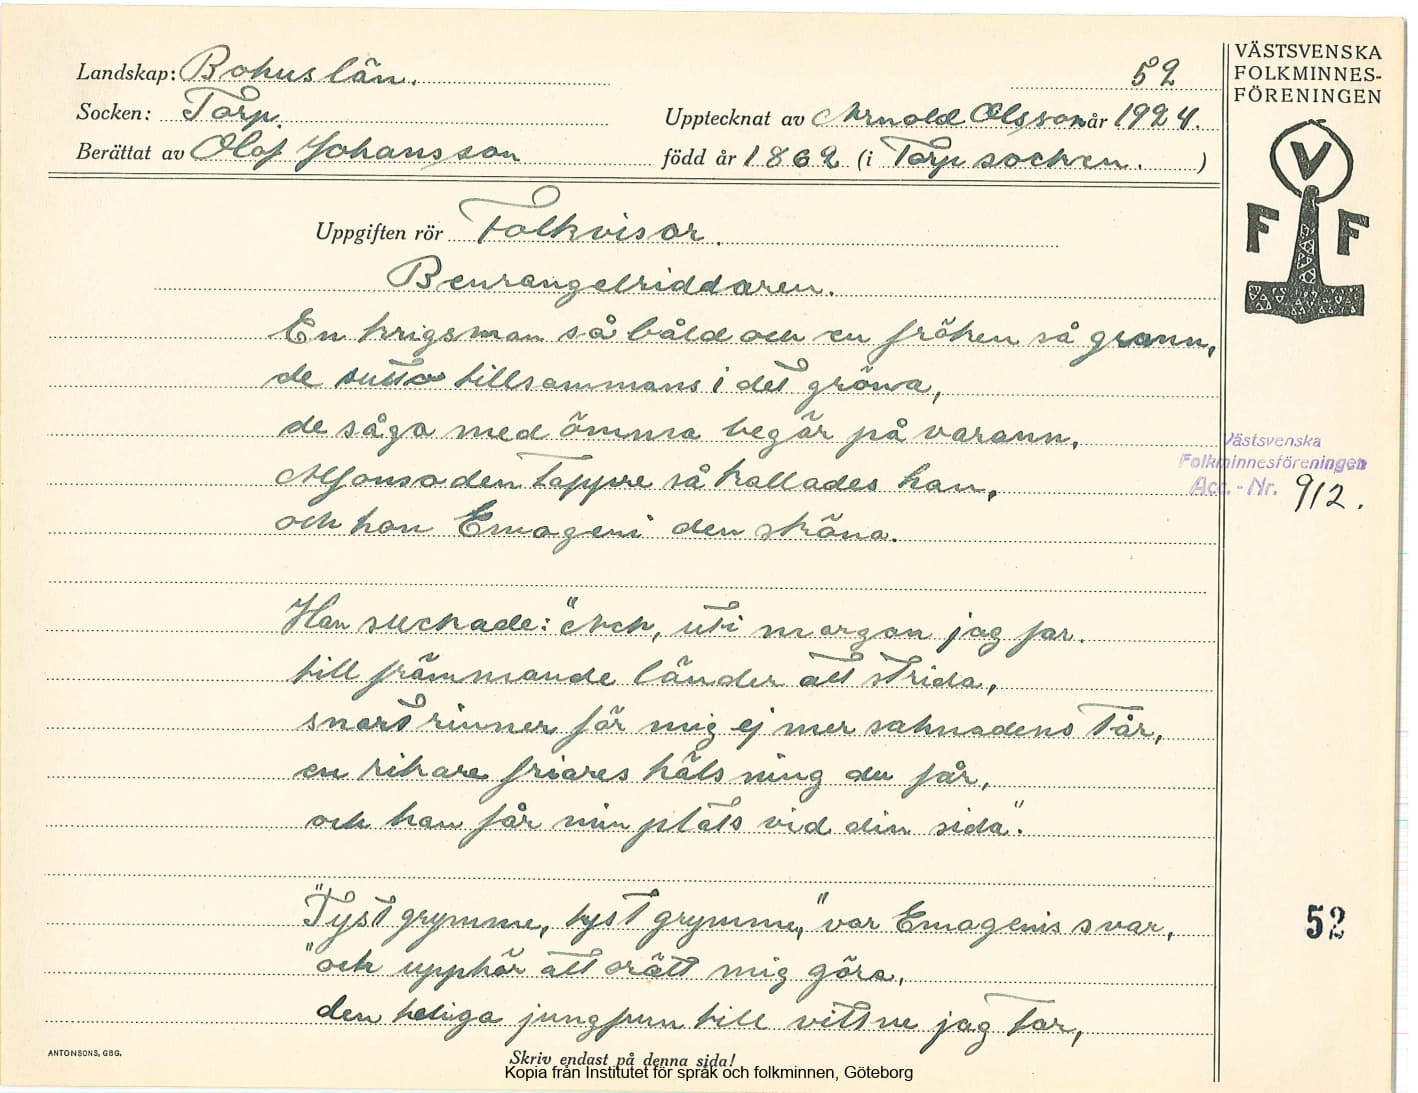 Landskap: Bohuslän.
52
Socken: Torp.
Upptecknat av Arnold Olsson år 1924.
Berättat av Olof Johansson
född år 1862 (i Torp socken. )
VÄSTSVENSKA
FOLKMINNES-
FÖRENINGEN
V
F F
Uppgiften rör Folkvisor.
Benrangelriddaren.
En krigsman så båld och en fröken så grann,
de sutto tillsammans i det gröna,
de såga med ömma begär på varann,
Alfonso den tappre så kallades han,
och hon Emogeni den sköna.
Västsvenska
Folkminnesföreningen
Acc.-Nr. 912.
Han suckade: "Ack, uti morgon jag far.
till främmande länder att strida,
snart rinner för mig ej mer saknadens tår,
en rikare friares hälsning du får,
och han får min plats vid din sida".
"Tyst grymme, tyst grymme," var Emogenis svar,
"och upphör att orätt mig göra,
den heliga jungfrun till vittne jag tar,
52
ANTONSONS, GBG.
Skriv endast på denna sida!
Kopia från Institutet för språk och folkminnen, Göteborg